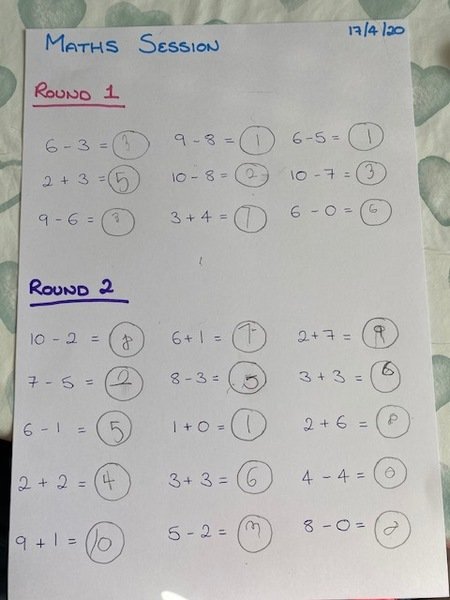 MATHS SESSION 17/4/20
ROUND 1
6 - 3 = 3 9 - 8 = 1 6 - 5 = 1
2 + 3 = 5 10 - 8 = 2 10 - 7 = 3
9 - 6 = 3 3 + 4 = 7 6 - 0 = 6
ROUND 2
10 - 2 = 8 6 + 1 = 7 2 + 7 = 9
7 - 5 = 2 8 - 3 = 5 3 + 3 = 6
6 - 1 = 5 1 + 0 = 1 2 + 6 = 8
2 + 2 = 4 3 + 3 = 6 4 - 4 = 0
9 + 1 = 10 5 - 2 = 3 8 - 0 = 8